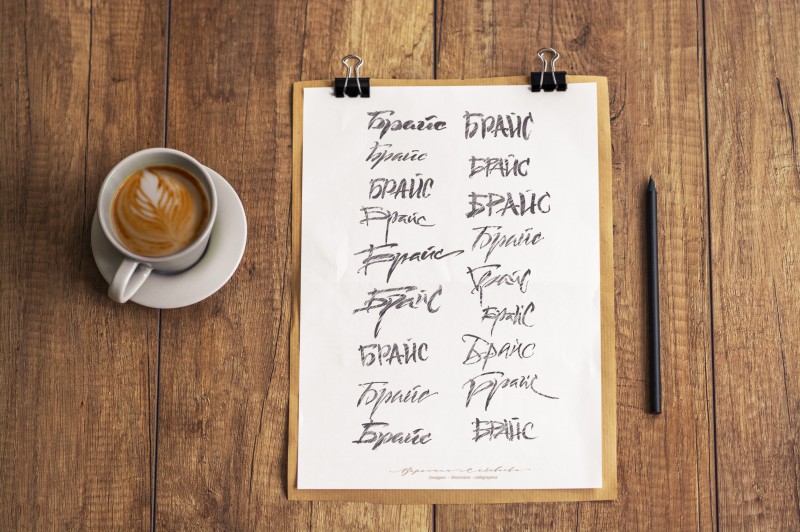 Брайс БРАЙС
Брайс БРАЙС
БРАЙС БРАЙС
Брайс Брайс
Брайс Брайс
Брайс Брайс
БРАЙС Брайс
Брайс Брайс
Брайс БРАЙС